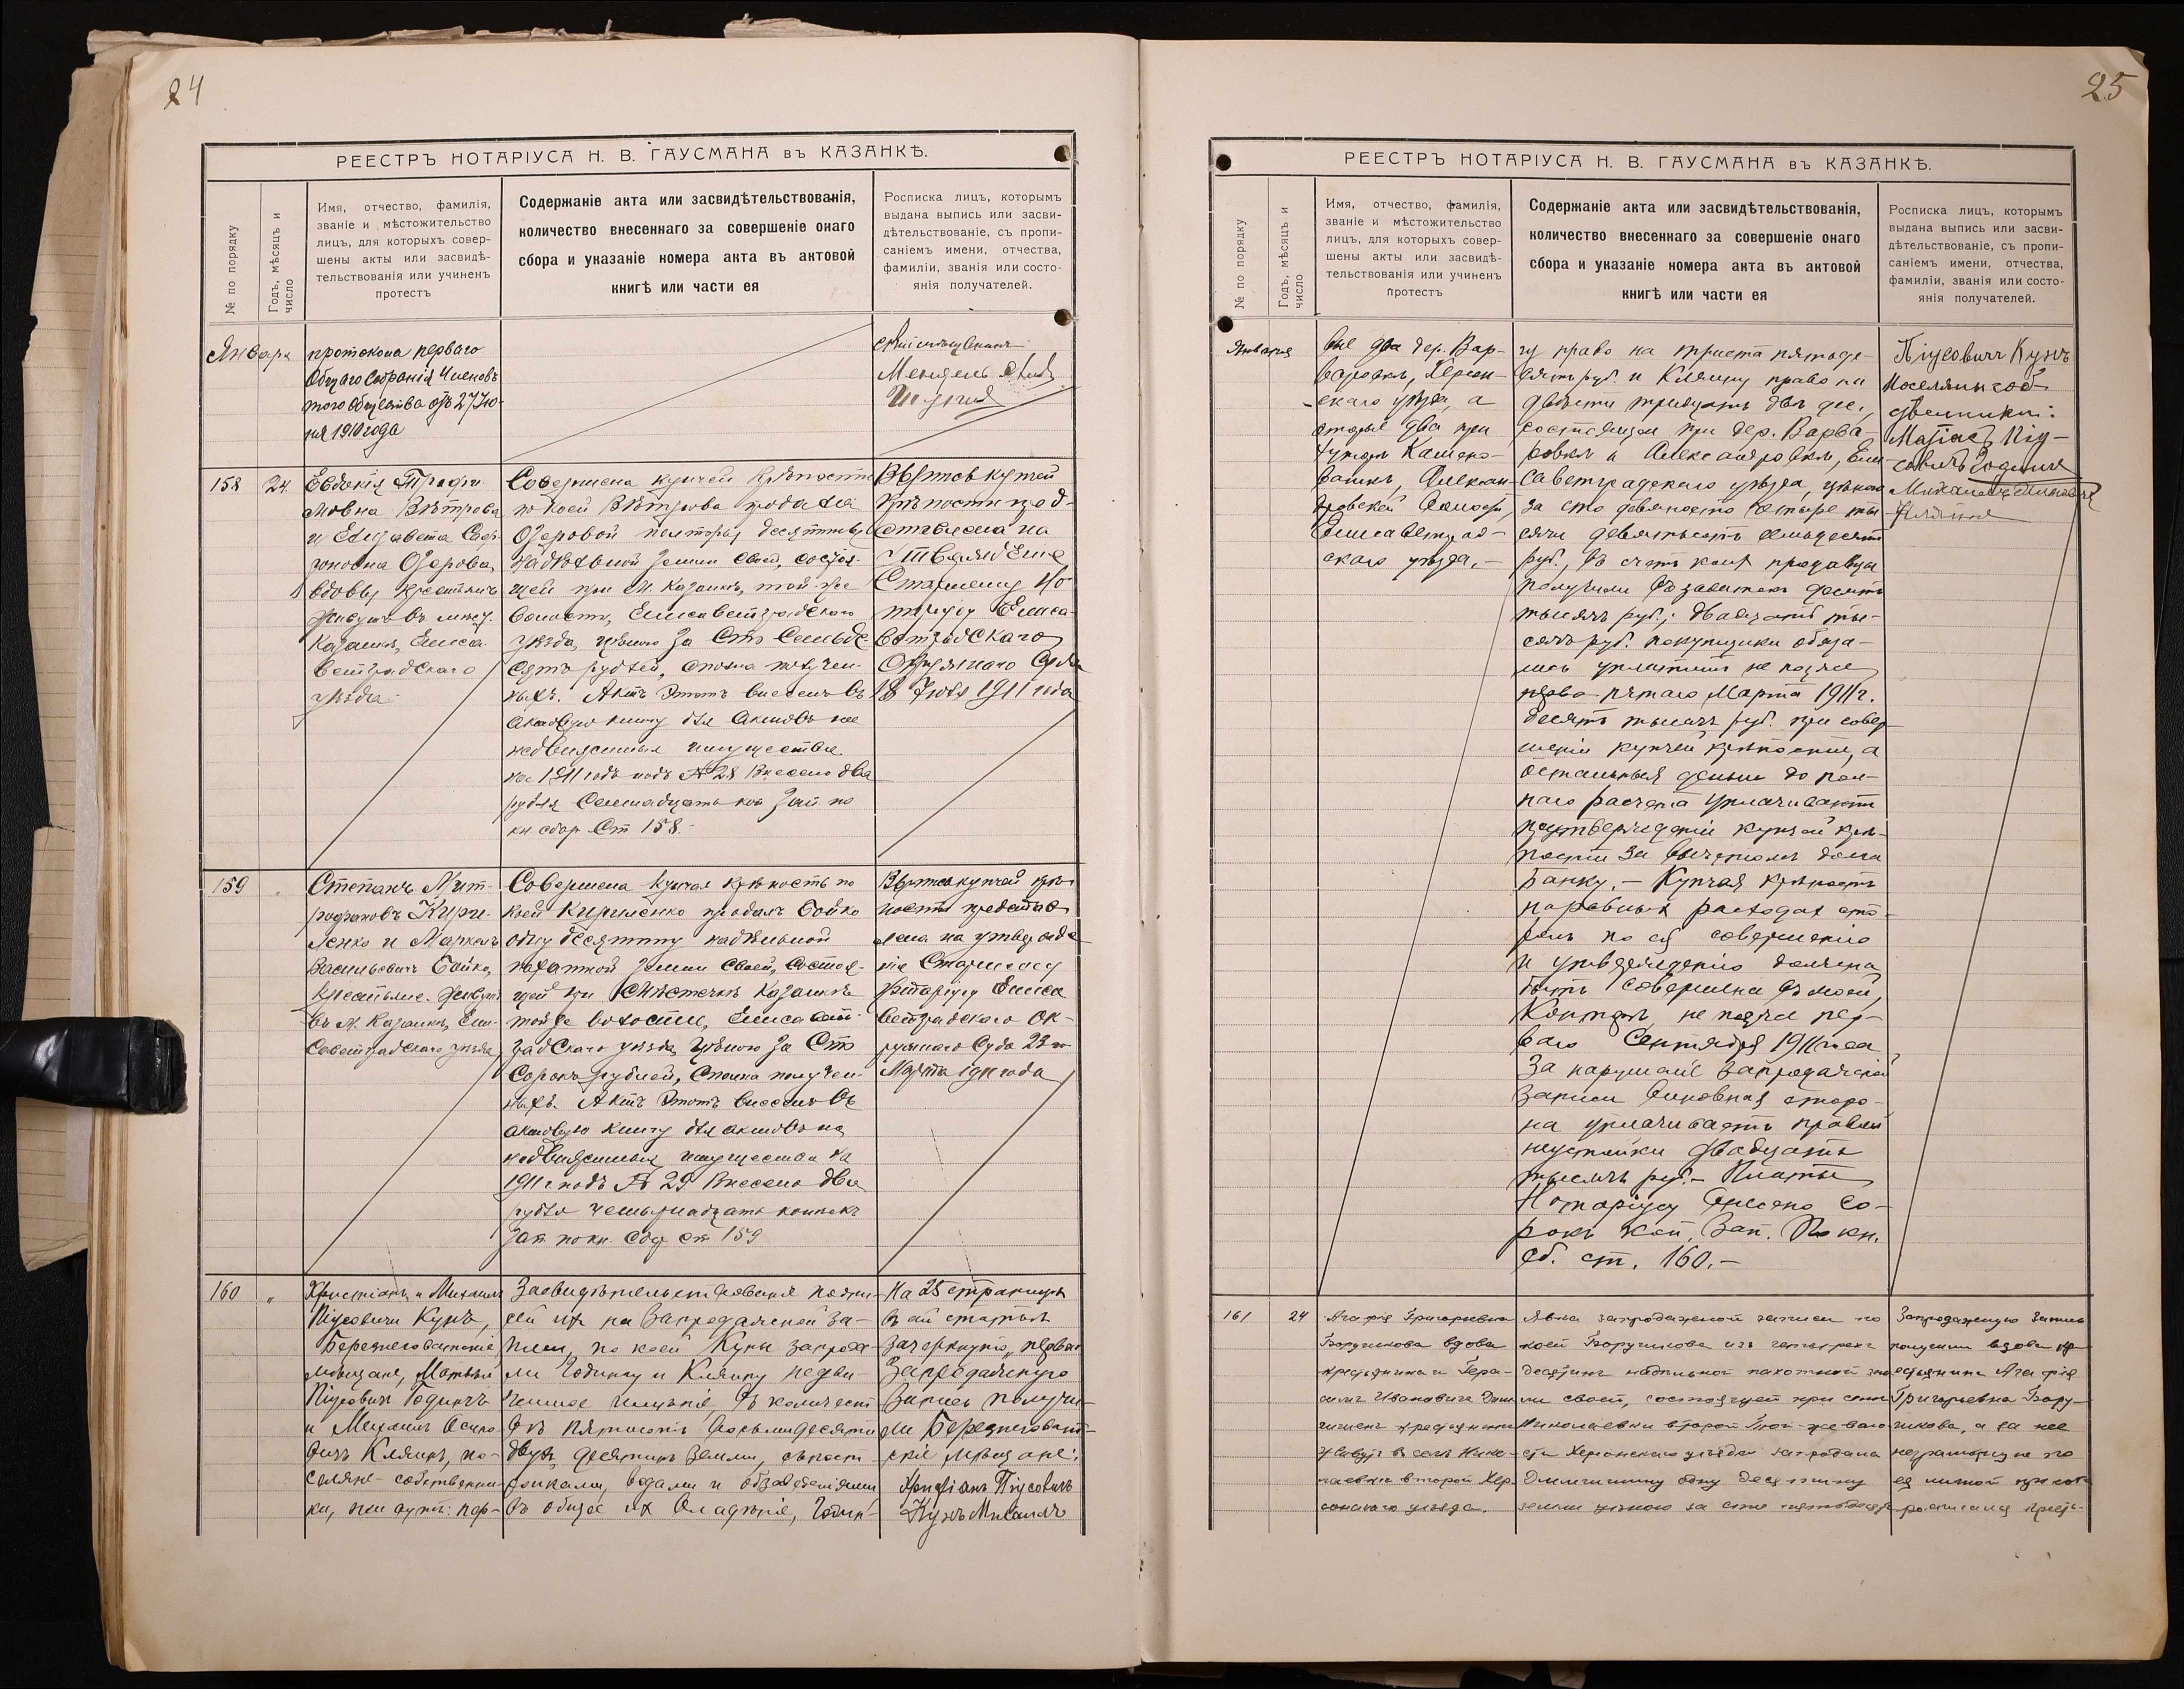 24
РЕЕСТРЪ НОТАРІУСА Н. В. ГАУСМАНА въ КАЗАНКѢ.
№ по порядку
Годъ, мѣсяцъ и
число
Имя, отчество, фамилія,
званіе и мѣстожительство
лицъ, для которыхъ совер-
шены акты или засвидѣ-
тельствованія или учиненъ
протестъ
Содержаніе акта или засвидѣтельствованія,
количество внесеннаго за совершеніе онаго
сбора и указаніе номера акта въ актовой
книгѣ или части ея
Росписка лицъ, которымъ
выдана выпись или засви-
дѣтельствованіе, съ пропи-
саніемъ имени, отчества,
фамиліи, званія или состо-
янія получателей.
Января
протокола перваго
Общаго Собранія Членовъ
того Общества отъ 27 Iю-
ня 1910 года
Мендель
158
24
Евдокія Трофи
мовна Вѣтрова
и Елизавета
Озерова,
вдовы крестьянъ
живущ. въ мѣст.
Казанкѣ, Елиса
ветградскаго
уѣзда
Совершена купчей крѣпости
по коей Вѣтрова продала
Озеровой полторы десятины
надѣльной земли своей, состоя-
щей при М. Казанкѣ, той-же
волости, Елисаветградскаго
уѣзда, цѣною за Сто Семьде
сятъ рублей, сполна получен-
ныхъ. Актъ этотъ внесенъ въ
актовую книгу для актовъ на
недвижимыя имущества
на 1911 годъ подъ № 28 Внесено два
рубля Семнадцать коп Зап по
кн. сбор Ст 158.
Выпись купчей
крѣпости пред-
ставлена на
утвержденіе
Старшему Но
таріусу Елиса
ветградскаго
Окружнаго Суда
18 1911 года
159
Степанъ Мит-
рофановъ Кири-
ленко и Маркелъ
Васильевичъ Бойко,
крестьяне. живущ
въ М. Казанкѣ, Ели-
саветградскаго уѣзда
Совершена Купчая крѣпость по
коей Кириленко продалъ Бойко
одну десятину надѣльной
пахатной земли своей, состоя-
щей при Мѣстечкѣ Казанкѣ
той же волости, Елисавет-
градскаго уѣзда, цѣною за Сто
Сорокъ рублей, сполна получен-
ныхъ. Актъ этотъ внесенъ въ
актовую книгу для актовъ на
недвижимыя имущества на
1911 г подъ № 29 Внесено два
рубля четырнадцать копѣекъ
Зап по кн. Сбор ст 159
Выпись купчей крѣ-
пости представ
лена на утвержде
ніе Старшему
Нотаріусу Елиса
ветградскаго Ок-
ружнаго Суда 23го
Марта 1911 года
160
"
Христіанъ и Михаилъ
Піусовичи Кунъ,
Березнеговатскіе
мѣщане, Матвѣй
Піусовичъ Годинъ
и Михаилъ Осипо
вичъ Клянъ, по-
селяне-собственни-
ки, живутъ: пер-
Засвидѣтельствованія подпи-
сей ихъ на запродажной за-
писи, по коей Куны запрода-
ли Годину и Кляну недви-
жимое имѣніе, въ количест
вѣ пятисотъ восьмидесяти
двухъ десятинъ земли, съ пост-
ройками, водами и обзаведеніями
въ общее ихъ владѣніе, Годи-
На 25 страницѣ
въ ст статьѣ
зачеркнуто "первая
Запродажную
запись получи-
ли Березнеговат-
скіе мѣщане:
Христіанъ Піусовичъ
Кунъ Михаилъ
25
РЕЕСТРЪ НОТАРІУСА Н. В. ГАУСМАНА въ КАЗАНКѢ.
№ по порядку
Годъ, мѣсяцъ и
число
Имя, отчество, фамилія,
званіе и мѣстожительство
лицъ, для которыхъ совер-
шены акты или засвидѣ-
тельствованія или учиненъ
протестъ
Содержаніе акта или засвидѣтельствованія,
количество внесеннаго за совершеніе онаго
сбора и указаніе номера акта въ актовой
книгѣ или части ея
Росписка лицъ, которымъ
выдана выпись или засви-
дѣтельствованіе, съ пропи-
саніемъ имени, отчества,
фамиліи, званія или состо-
янія получателей.
Января
вые два дер. Вар-
варовкѣ, Херсон-
скаго уѣзда, а
вторые два при
хуторѣ Камено-
ваткѣ, Алексан
дровской волости,
Елисаветград-
скаго уѣзда.-
ну право на триста пятьде-
сятъ руб. и Кляну право на
двѣсти тридцать двѣ дес.,
состоящія при дер. Варва-
ровкѣ и Александровкѣ, Ели-
саветградскаго уѣзда, цѣною
за сто девяносто четыре ты
сячи девятьсотъ семьдесятъ
руб., въ счетъ коихъ продавцы
получили въ задатокъ десять
тысячъ руб.; двадцать ты-
сячъ руб. покупщики обяза-
лись уплатить не позже
перво-пятаго Марта 1911 г.
десять тысячъ руб. при совер-
шеніи купчей крѣпости, а
остальныя деньги до пол-
наго расчета уплачиваютъ
по утвержденіи купчей крѣ-
пости за вычетомъ долга
банку.- Купчая крѣпость
на равныхъ расходахъ сто-
ронъ по ея совершенію
и утвержденію должна
быть совершена въ моей
Конторѣ, не позже пер-
ваго Сентября 1911 года
За нарушеніе запродажной
записи виновная сторо-
на уплачиваетъ правой
неустойки двадцать
тысячъ руб.- Платы
Нотаріусу внесено со-
рокъ коп. Зап. По кн.
сб. ст. 160.-
Піусовичъ Кунъ
Поселяне соб-
ственники:
Матіасъ Піу-
совичъ Годинъ
161
24
Агафія Григорьевна
Боручикова вдова
крестьянина и Гера-
симъ Ивановичъ
крестьянинъ
живущ. въ селѣ Нико-
лаевкѣ второй Хер-
сонскаго уѣзда.
Явка запродажной записи по
коей Боручикова изъ четырехъ
десятинъ надѣльной пахотной зем
ли своей, состоящей при селѣ
Николаевки второй той-же воло
сти Херсонскаго уѣзда запродала
одну десятину
земли цѣною за сто пятьдеся
Запродажную запись
получили вдова кр
естьянина Агафія
Григорьевна Бору-
чикова, а за нее
неграмотную по
ея личной просьбѣ
росписался кресть-